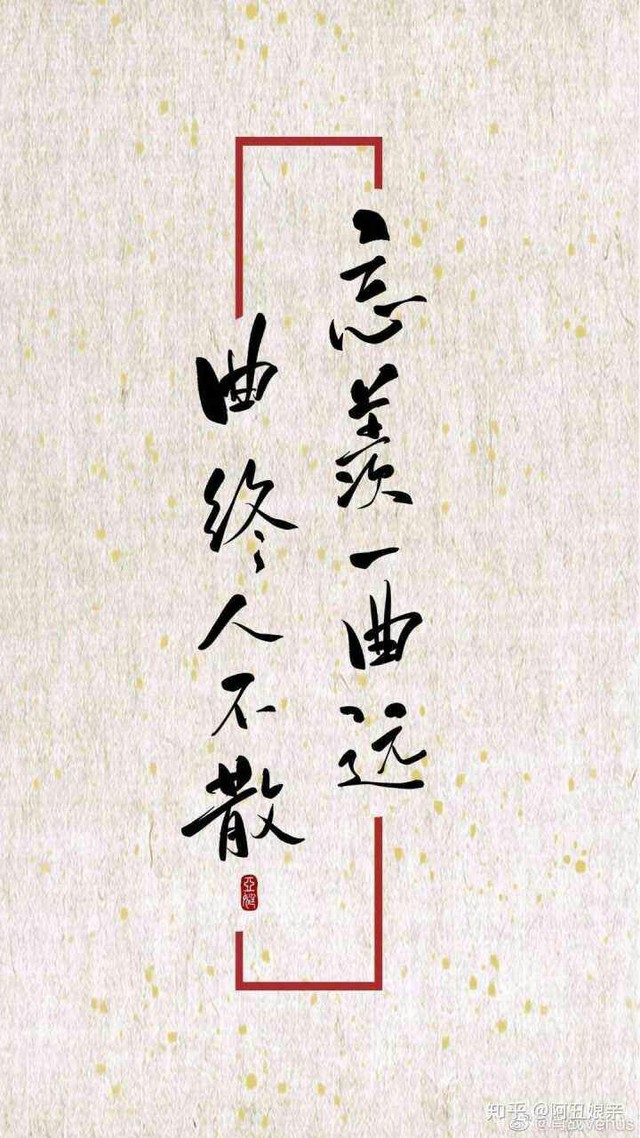 忘羡一曲远
曲终人不散
知乎 @阿丑娘亲